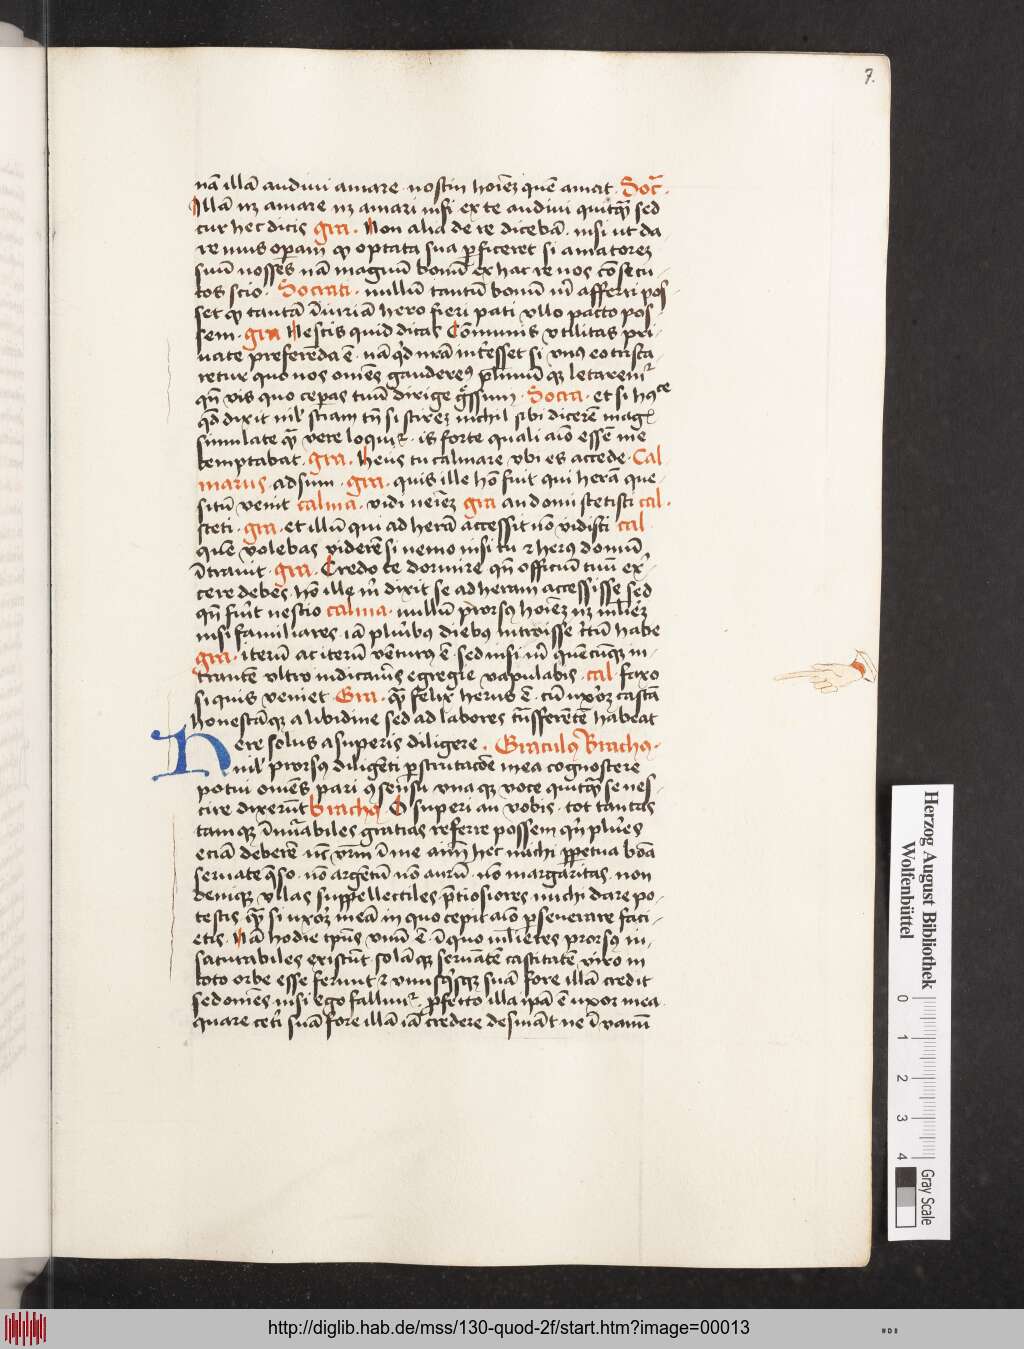 7.
nā illā audiui amare · nostin hoīez quē amat · Socͬ ·
Illā nz amare nz amari nisi ex te audiui quicq̄ sed
cur hec dicis gra · Non alia de re dicebā · nisi ut da
remus operam qͦ optata sua ꝑficeret si amatorez
suū nosses nā magnū bonū ex hac re nos cōsecu-
tos scio · Socrati · nullū tantū bonū m̄ afferri pos-
set qͦ tantā īiuriā hero fieri pati vllo pacto pos
sem · gra Nescis quid dicas Cōmunis vtilitas pri-
uate preferēda ē · nā qͥd nrā intēsset si vnus eo trista
retur quo nos omēs gauderemꝰ plīmū qꝫ letarem̄
qn̄ vis quo ceperas tuū dirige gressum · Socra · et si
qd̄ dixit nil' sciam tn̄ si scirez nichil sibi dicerē mag
simulate qͣ vere loqui · is forte quali aīo essē me
temptabat · gra · Heus tu calmare vbi es accede · Cal
marus · adsum · gra · quis ille hō fuit qui herā que-
situ venit calma · vidi neīez gra an domi stetisti cal ·
steti · gra · et illū qui ad herā accessit nō vidisti cal
quē volebas viderē si nemo nisi tu ⁊ herus domū
ītrauit · gra · Credo te dormire qn̄ officiū tuū ex-
cere debes · hō ille m̄ dixit se ad heram accessisse sed
qn̄ fuit nescio calma · nullū prorsꝰ hoīez nz mliez
nisi familiares · iā plurībꝰ diebꝰ introisse c̄tū habe
gra · iterū ac iterū vēturus ē · sed nisi m̄ quēcūqꝫ in-
trantē vltro indicaueris egregie vapulabis · cal faxo
si quis veniet · Gra · qͣ felix herus ē · cū uxorez castā
honestāqꝫ a libidine sed ad labores trāsferētē habeat
Uere solus a superis diligere · Graculus Brachus ·
nil' prorsꝰ diligēti ꝑscrutacōe mea cognoscere
potui omēs pari ꝯsensu vna qꝫ voce quicq̄ se nes-
cire dixerūt brachꝰ O superi an vobis · tot tantas
tam qꝫ īnuābiles gratias referre possem qn̄ plures
eciā deberē · vr̄m ī me aīm hec michi ꝑpetua bōa
seruate q̄so · nō argētū nō aurū · nō margaritas · non
deniqꝫ vllas suppellectiles p̄tiosiores michi dare po-
testis qͣ si uxorez meā in quo cepit aīo ꝑseuerare faci-
etis · Nā hodie tꝑus vnū ē · ī quo mlieres prorsꝰ in-
saturabiles existūt · solā qꝫ seruātē castitatē viro in
toto orbe esse ferunt ⁊ vnusqͥsqꝫ suā fore illā credit
sed omēs nisi ego fallunt · ꝓfecto illa ip̄a ē uxor mea ·
quare cet̄i suā fore illā iā credere desināt · ne ī vanū
Herzog August Bibliothek
Wolfenbüttel
0 1 2 3 4
Gray Scale
http://diglib.hab.de/mss/130-quod-2f/start.htm?image=00013